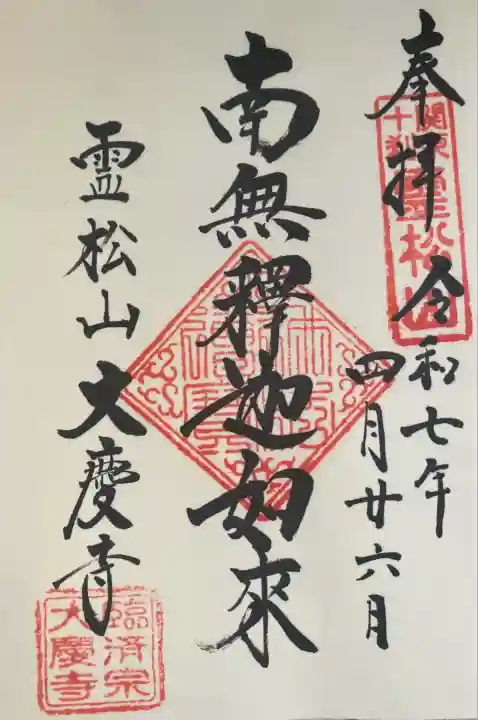 奉拝 令和七年
四月廿六月
南無釋迦如來
霊松山大慶寺
関東
十刹
霊松山
臨済宗
大慶寺